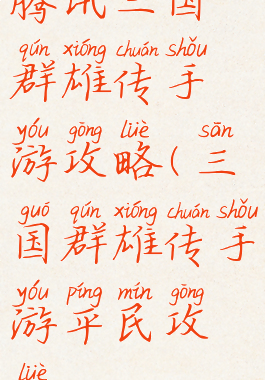 腾讯三国
qún xióng chuán shǒu
群雄传手
yóu gōng lüè sān
游攻略(三
guó qún xióng chuán shǒu
国群雄传手
yóu píng mín gōng
游平民攻
lüè